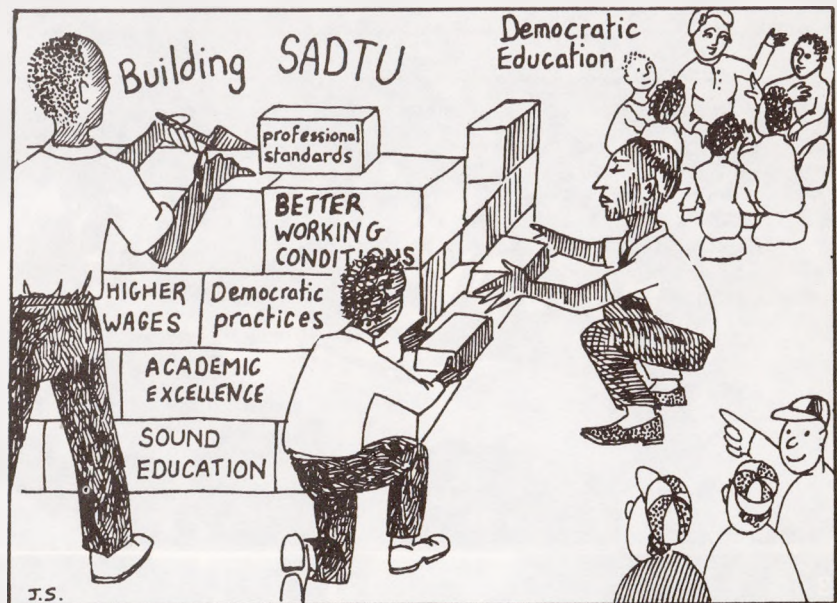 Building SADTU
Democratic
Education
professional
standards
BETTER
WORKING
CONDITIONS
HIGHER
WAGES
Democratic
practices
ACADEMIC
EXCELLENCE
SOUND
EDUCATION
J.S.